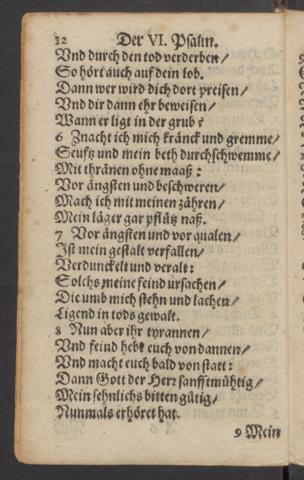 12 Der VI. Psalm.
Vnd durch den tod verderben/
So hört auch auf dein lob.
Dann wer wird dich dort preisen/
Vnd dir dann ehr beweisen/
Wann er ligt in der grub?
6 Znacht ich mich kränck und gremme/
Seuftz und mein beth durchschwemme/
Mit thränen ohne maaß:
Vor ängsten und beschweren/
Mach ich mit meinen zähren/
Mein läger gar pflütz naß.
7 Vor ängsten und vor qualen/
Ist mein gestalt verfallen/
Verdunckelt und veralt:
Solchs meine feind ursachen/
Die umb mich stehn und lachen/
Ligend in tods gewalt.
8 Nun aber ihr tyrannen/
Vnd feind hebt euch von dannen/
Vnd macht euch bald von statt:
Dann Gott der Herr sanfftmühtig/
Mein sehnlichs bitten gütig/
Nunmals erhöret hat.
9 Mein